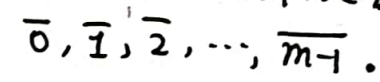 0̅, 1̅, 2̅, ⋯, \overline{m-1}.